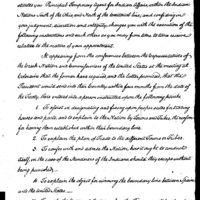 states you Principal Temporary Agent for Indian Affairs within the Indian
Nations South of the Ohio and North of the territorial line, and confiding in
your judgment, discretion and integrity, charges you with the execution of the
following instructions and such others as you may from time to time receive
relative to the nature of your appointment.
It appearing from the conferences between the representatives of
the Creek Nation and Commissioners of the United States at the meeting at
Colerain that the former have required and the latter promised, that the
President would send into their Country within four months from the date of the
Treaty there entered into a person instructed upon the following points
1. To assist in designating and fixing upon proper scites for trading
houses and posts, and to explain to them the Nation by Towns and Tribes, the reasons
for having them established within their boundary line.
2. To explain the Nature of Trade to the different Towns or Tribes.
3. To confer with and advise the Nation, how it ought to conduct
itself, in the case of the Murderers of the Indians should they escape without
being punished.
4. To explain the object for running the boundary line between Spain
and the United States.